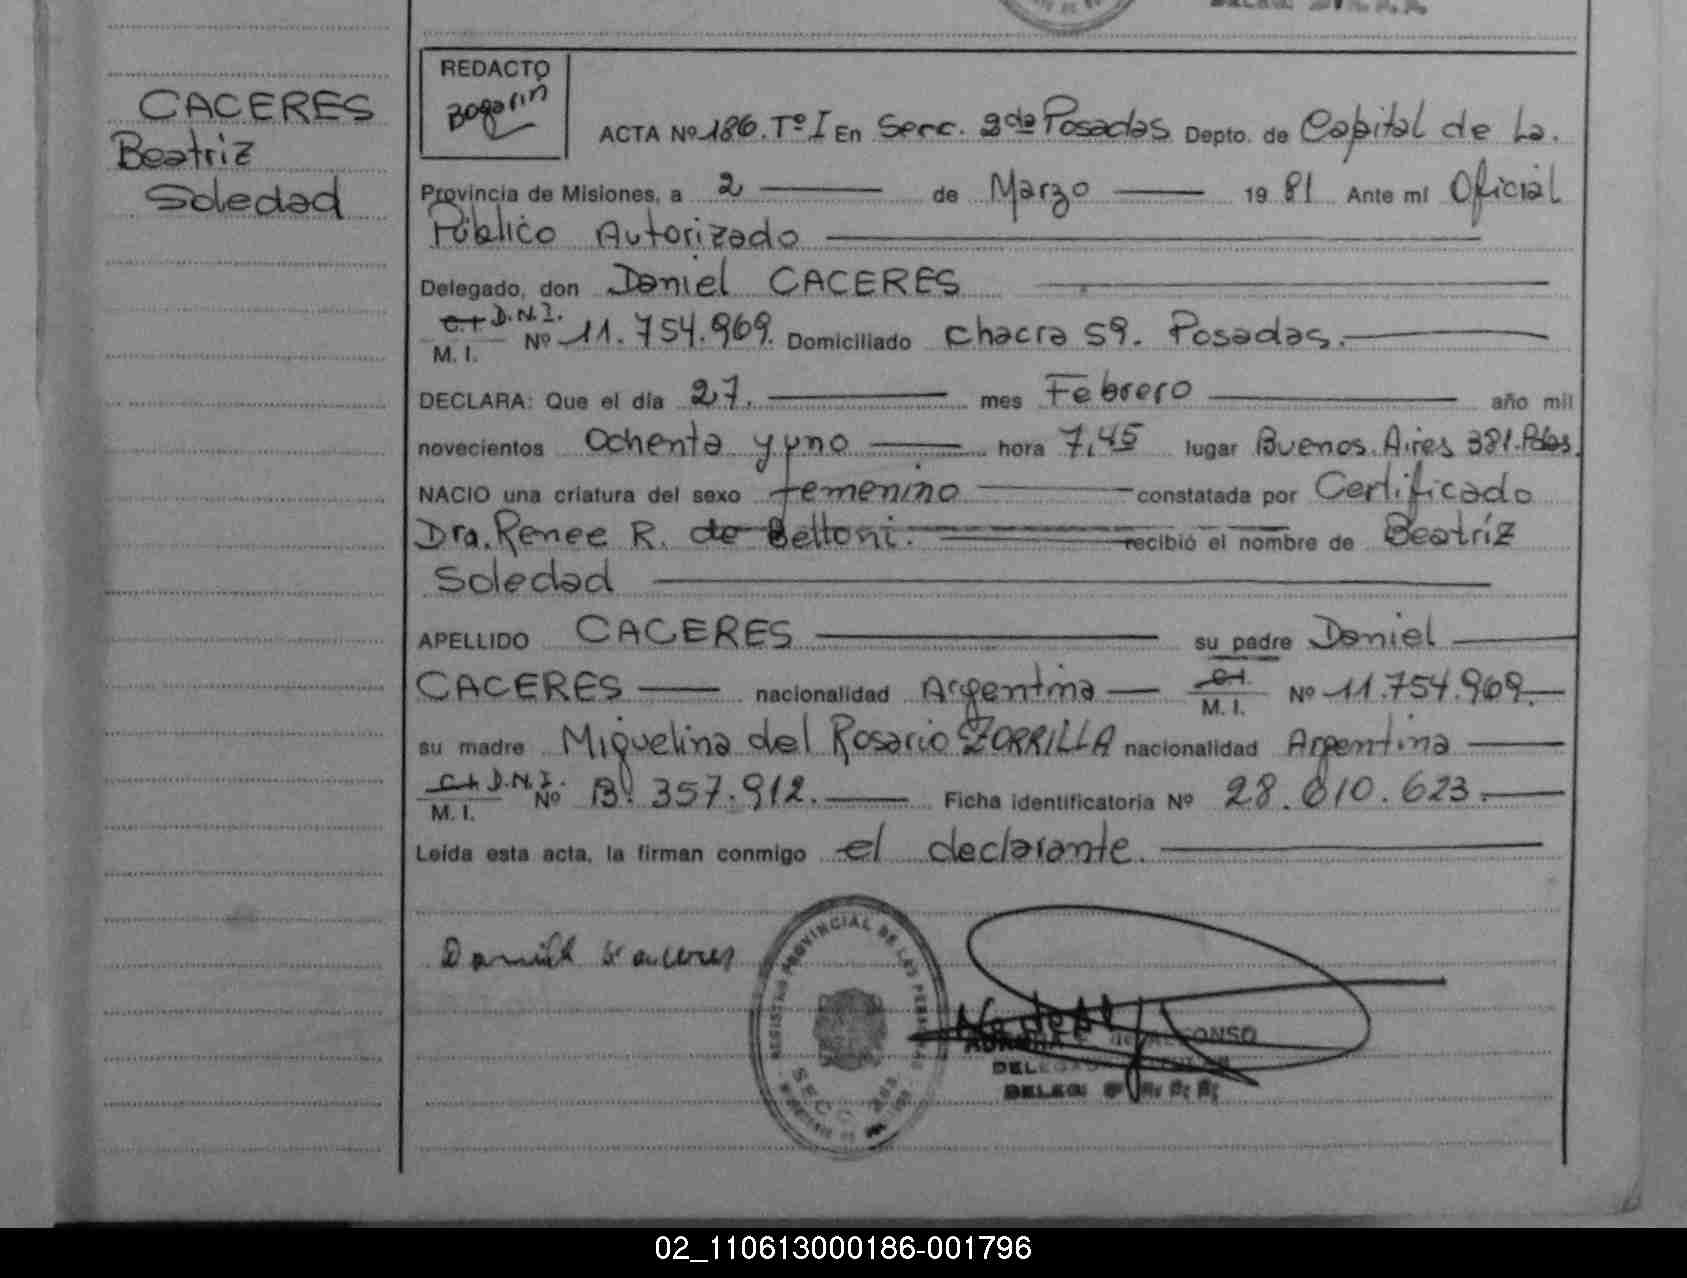 CACERES
Beatriz
Soledad
REDACTO
Bogarin
ACTA Nº 186. Tº I En Secc. 2da Posadas Depto. de Capital de La.
Provincia de Misiones, a 2 de Marzo 19 81 Ante mi Oficial
Público Autorizado
Delegado, don Daniel CACERES
C.I D.N.I.
M. I. Nº 11.754.969. Domiciliado Chacra 59. Posadas.
DECLARA: Que el día 27. mes Febrero año mil
novecientos Ochenta y uno hora 7,45 lugar Buenos Aires 381. Pdas.
NACIO una criatura del sexo femenino constatada por Certificado
Dra. Renee R. de Bettoni. recibió el nombre de Beatríz
Soledad
APELLIDO CACERES su padre Daniel
CACERES nacionalidad Argentina C.I. M. I. Nº 11.754.969.
su madre Miguelina del Rosario ZORRILLA nacionalidad Argentina
C.I D.N.I. M. I. Nº 13. 357.912. Ficha identificatoria Nº 28.610.623.
Leída esta acta, la firman conmigo el declarante.
REGISTRO PROVINCIAL DE LAS PERSONAS
SECC.
02_110613000186-001796